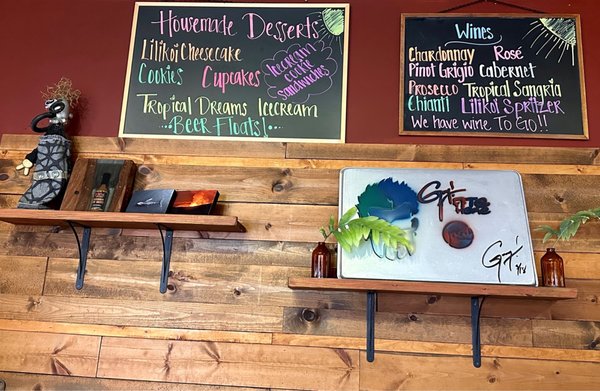 Housemade Desserts
Lilikoi Cheesecake
Cookies Cupcakes
Icecream
cookie
sandwiches
Tropical Dreams Icecream
Beer Floats!
Wines
Chardonnay Rosé
Pinot Grigio Cabernet
Prosecco Tropical Sangria
Chianti Lilikoi Spritzer
We have wine To GO!!